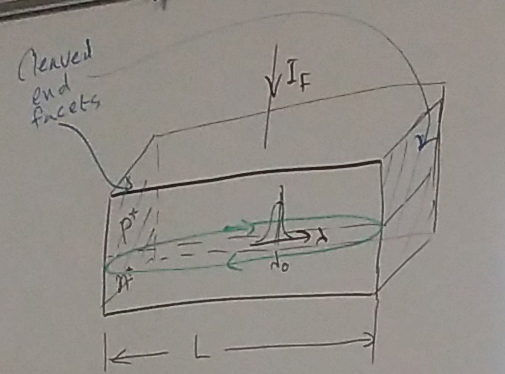 Cleaved
end
facets
I_F
p+
n+
λ
λ₀
L